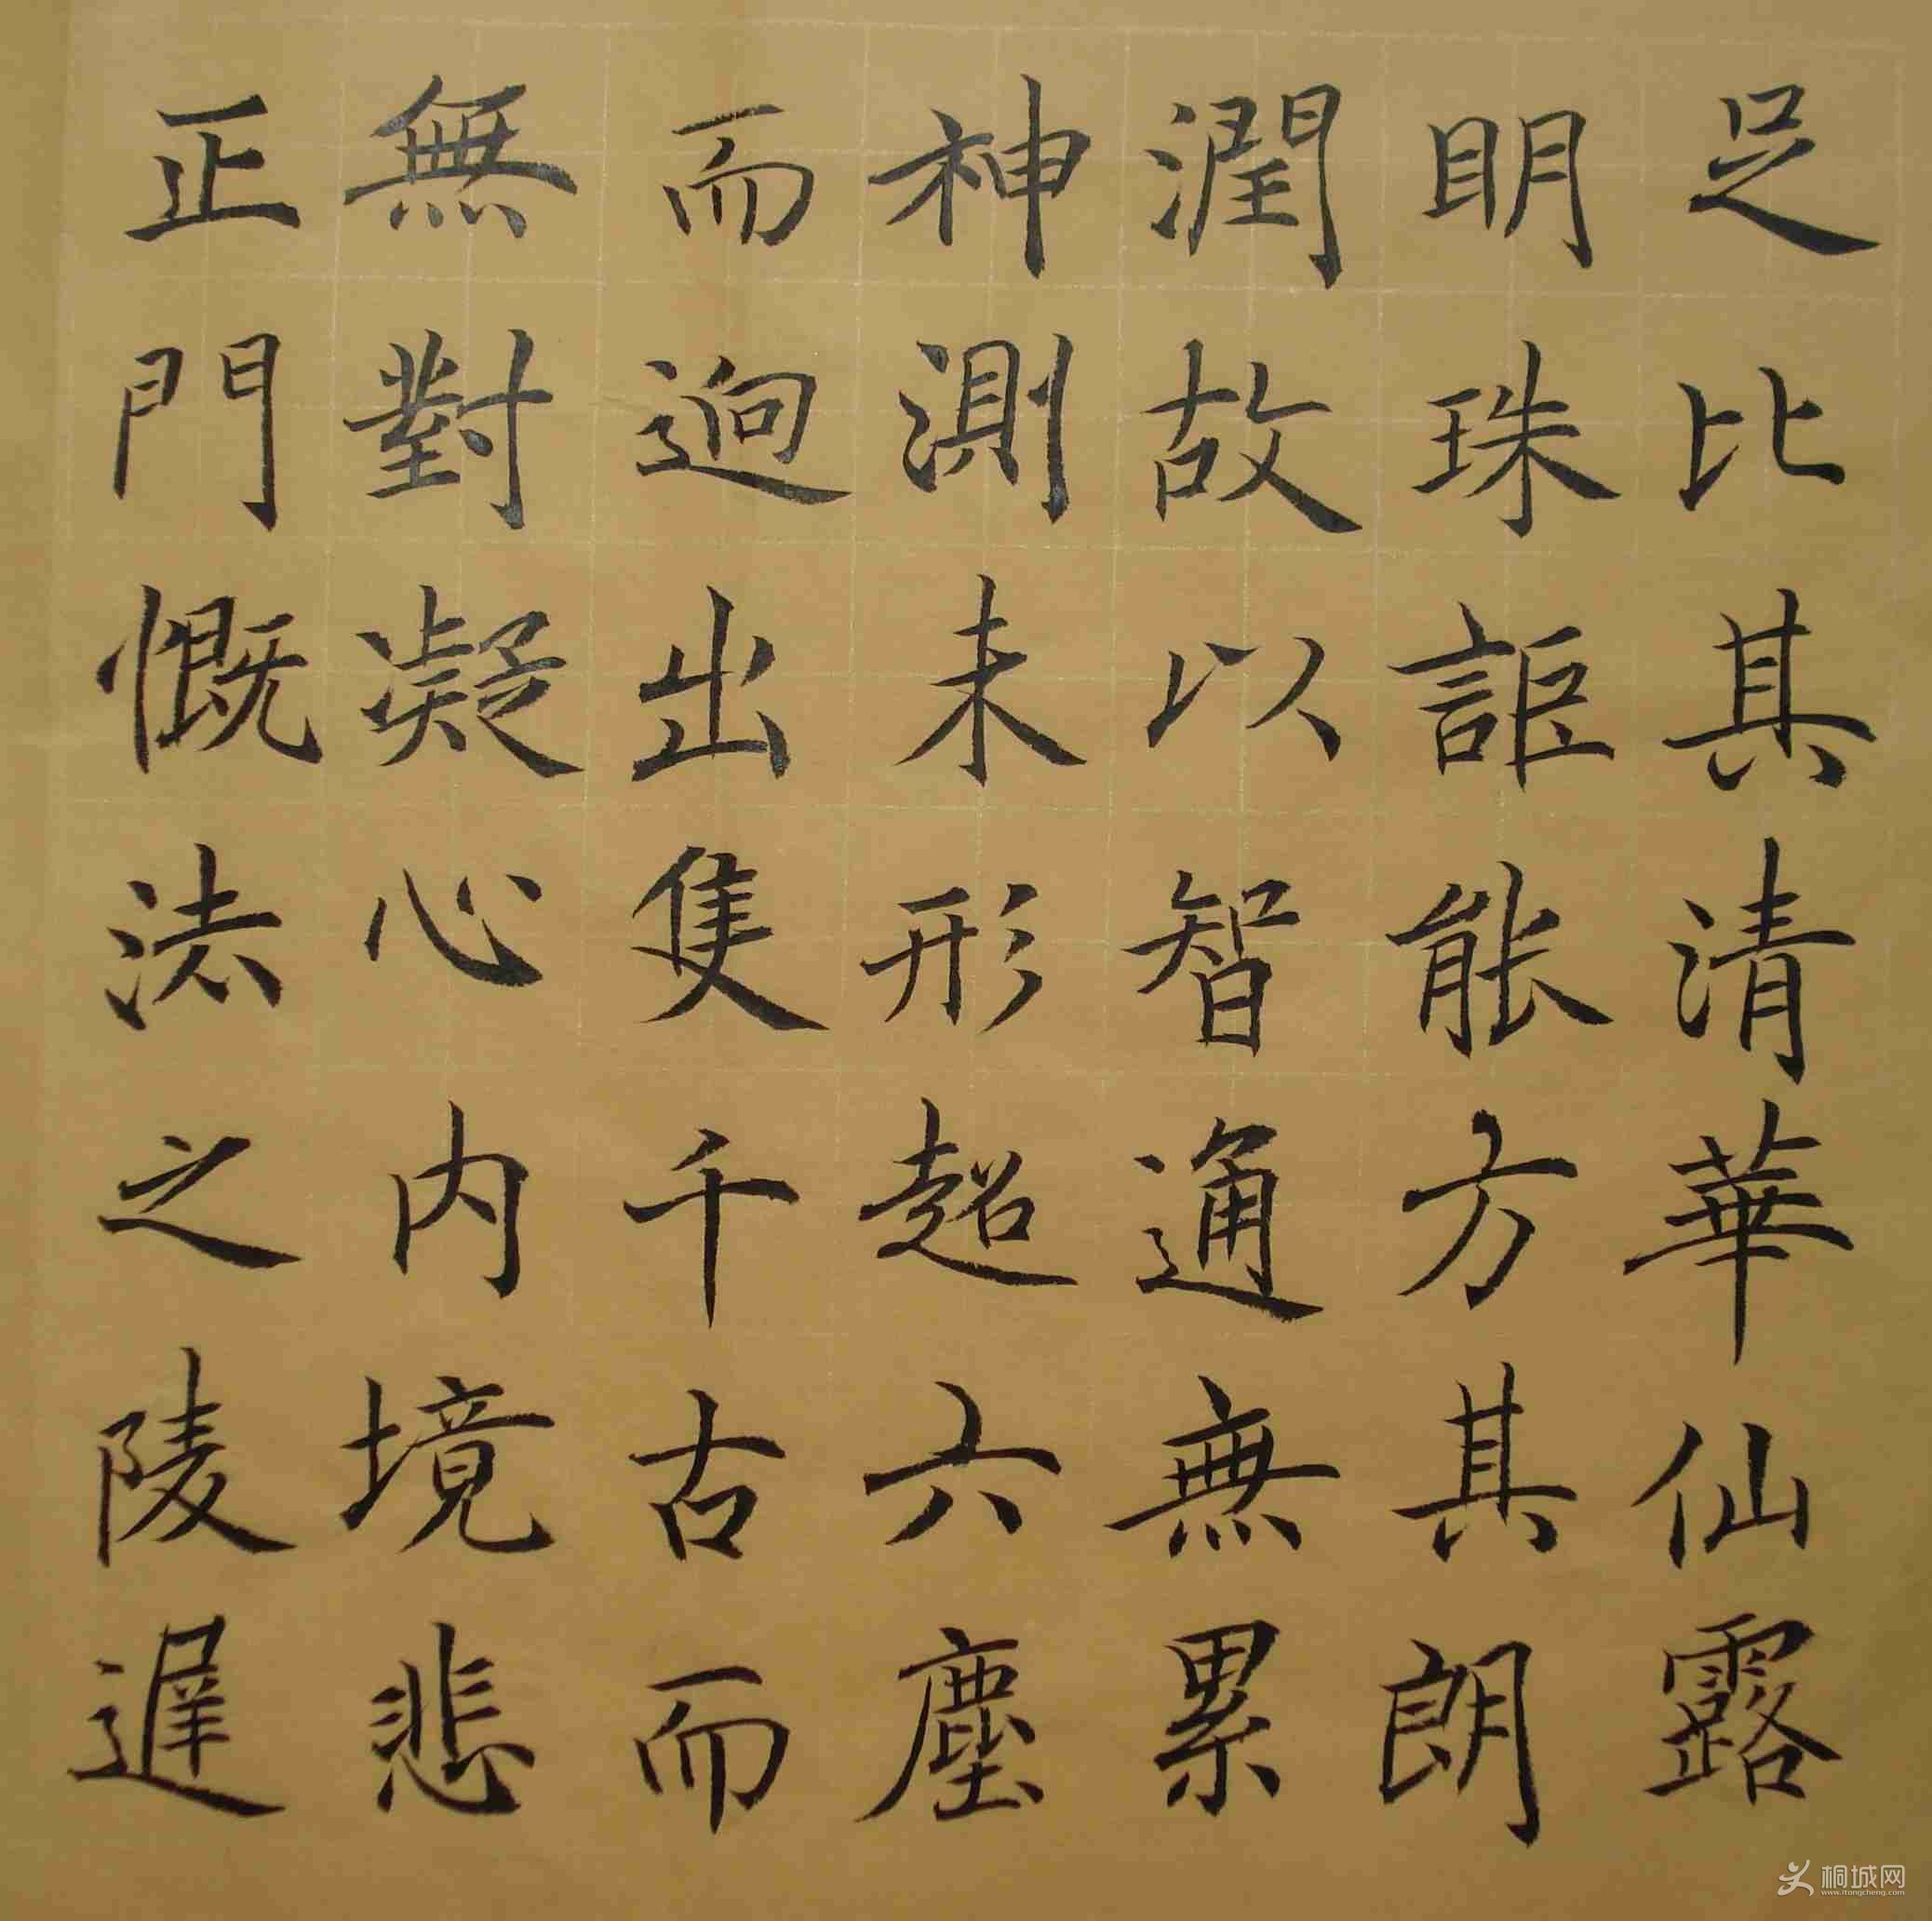 足比其清華仙露
明珠詎能方其朗
潤故以智通無累
神測未形超六塵
而迥出隻千古而
無對凝心內境悲
正門慨法之陵遲
桐城网
www.itongcheng.com